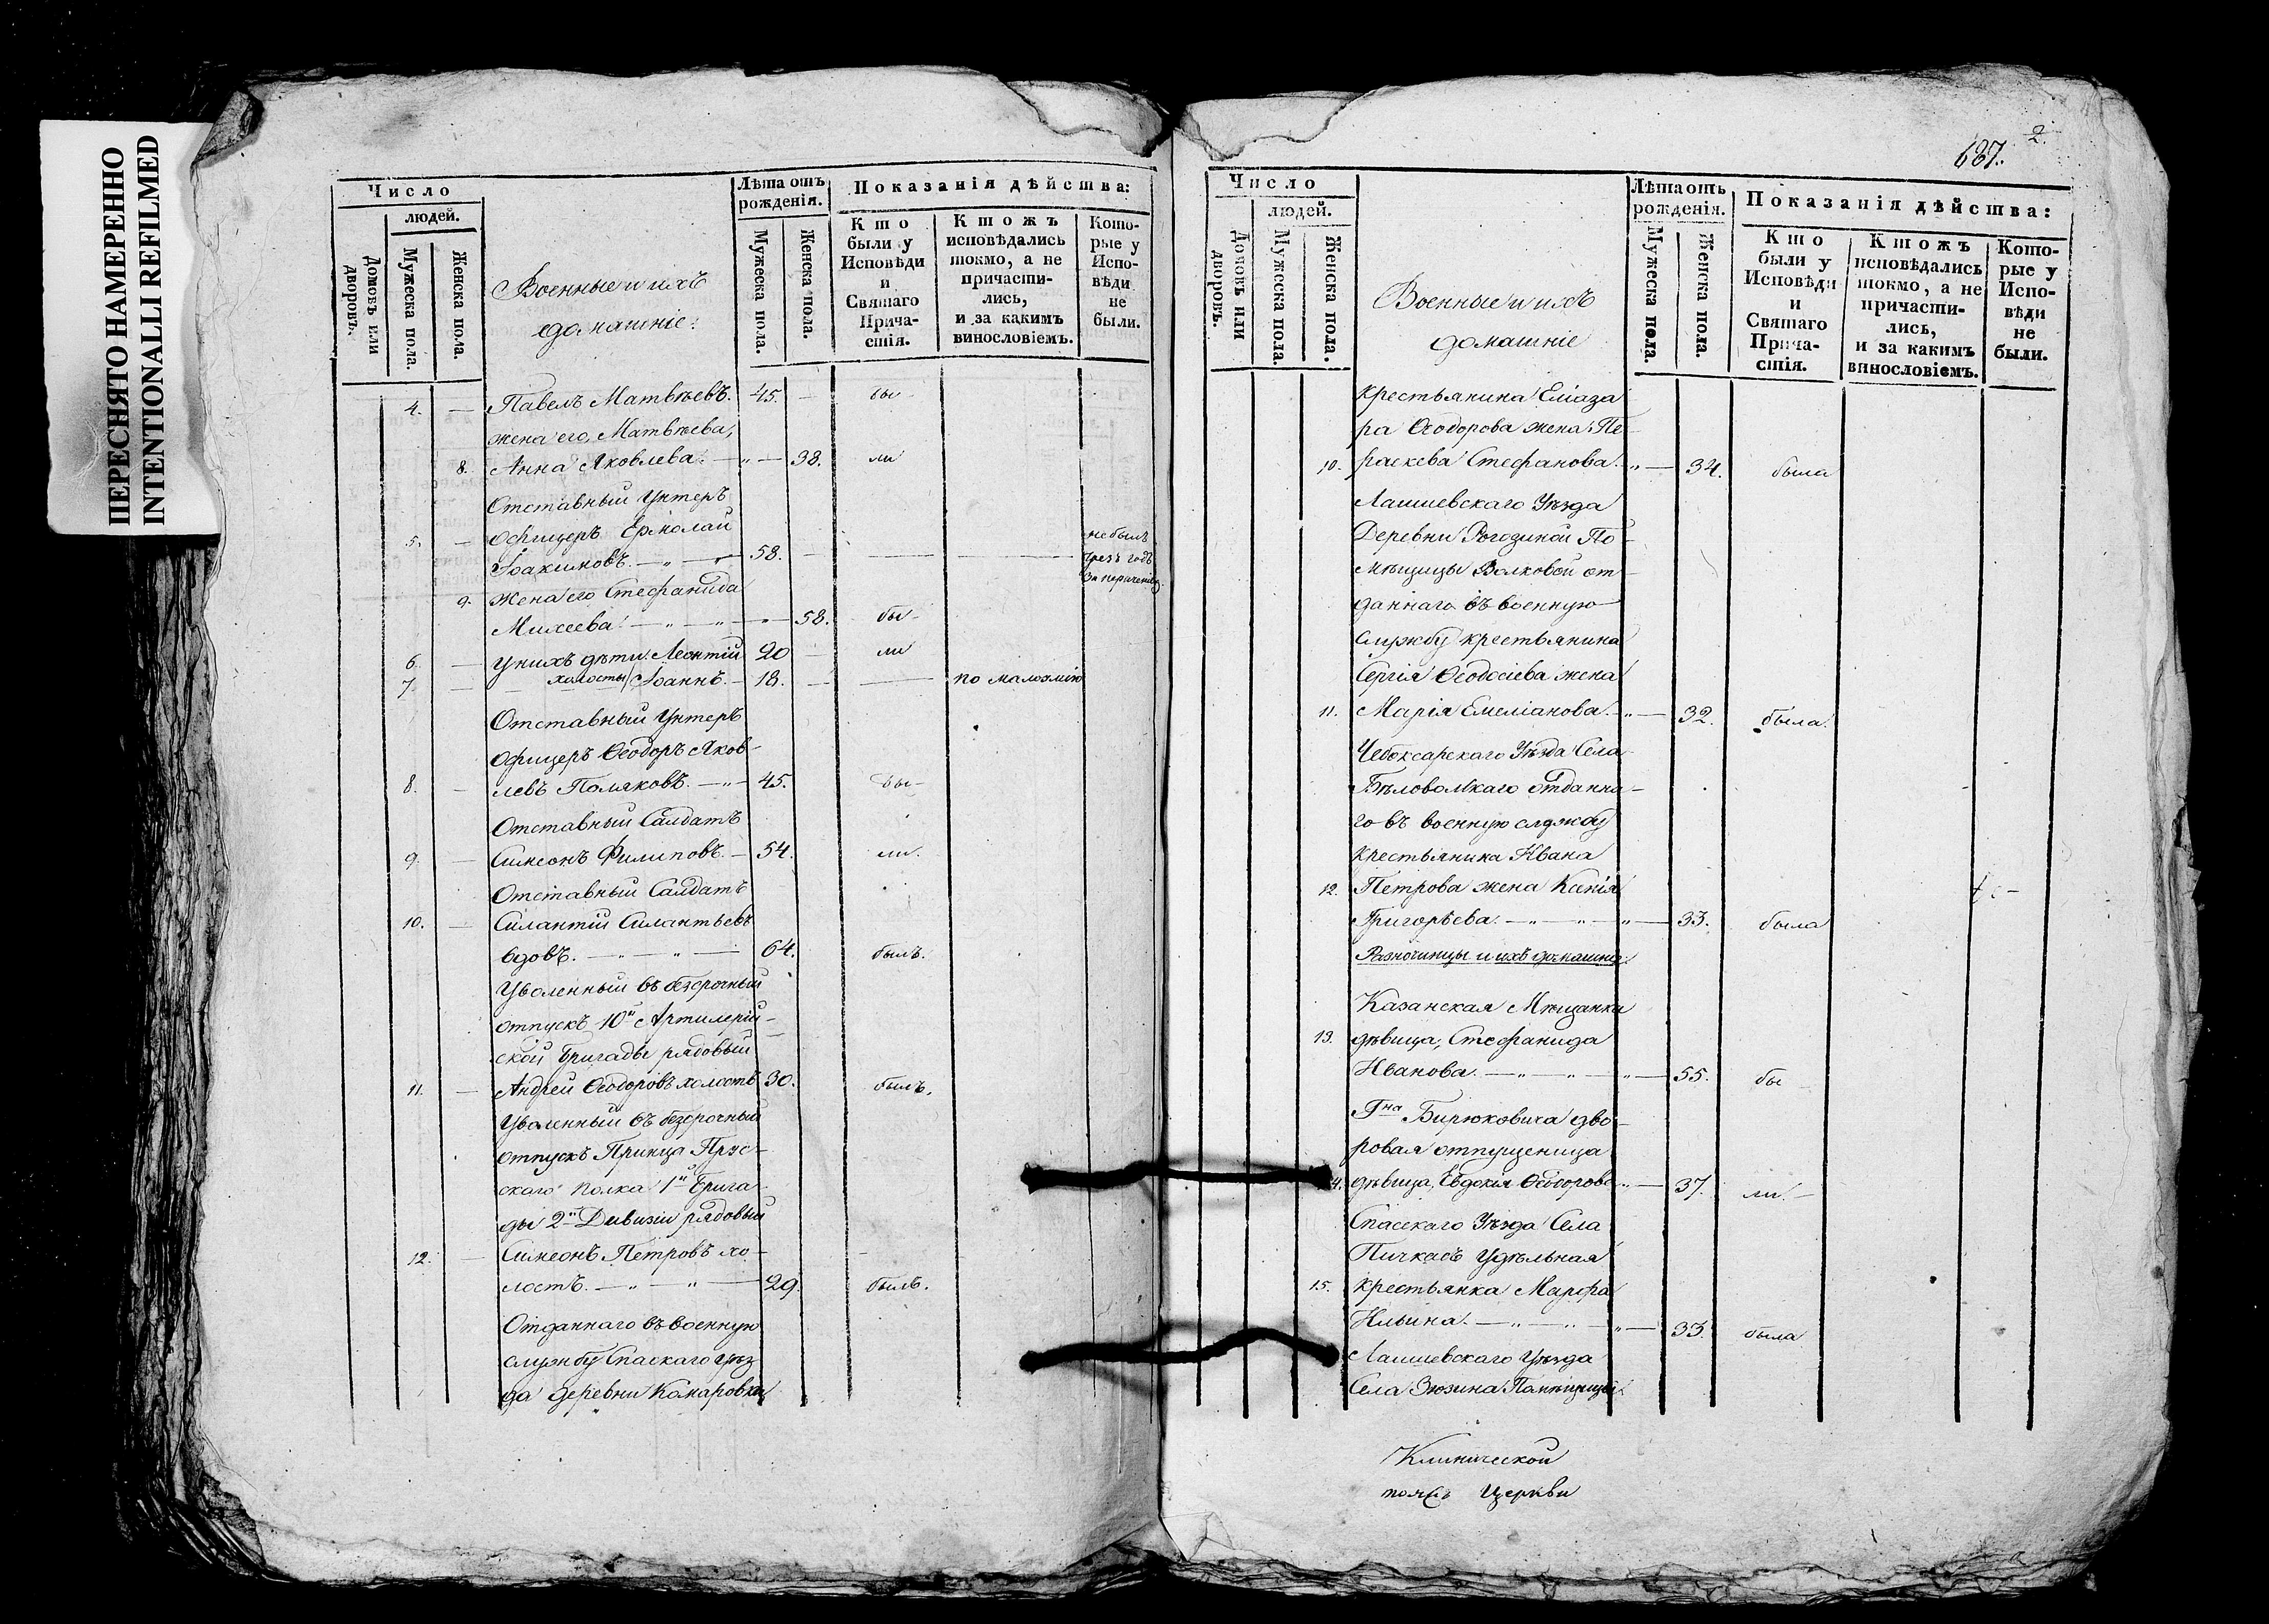 ПЕРЕСНЯТО НАМЕРЕННО
INTENTIONALLI REFILMED
Число
людей.
Домовъ или дворовъ.
Мужеска пола.
Женска пола.
Военные и ихъ
домашніе:
Лѣта отъ рожденія.
Мужеска пола.
Женска пола.
Показанія дѣйства:
Кто были у Исповѣди и Святаго Прича-стія.
Ктожъ исповѣдались токмо, а не причасти-лись, и за какимъ винословіемъ.
Кото-рые у Испо-вѣди не были.
4. — Павелъ Матвѣевъ. 45. — бы
жена его, Матвѣева,
8. Анна Яковлева. — „ — 38. ли
Отставный Унтеръ
5. — офицеръ Ермолай не былъ
Іоакимовъ. — „ — 58. — чрезъ годъ
9. жена его Стефанида
Михеева. — „ — „ — 58. бы-
6. — у нихъ дѣти: Леонтій 20 — ли
7. — холосты Іоаннъ. — 18. — по малоумію
Отставный Унтеръ
офицеръ Ѳеодоръ Яков-
8. — левъ Поляковъ. — „ — 45. бы-
Отставный Салдатъ
9. — Симеонъ Филиповъ. — 54. ли.
Отставный Салдатъ
10. — Силантій Силантьевъ
вдовъ. — „ — „ — 64. былъ.
Уволенный въ безсрочный
отпускъ 10й Артилерій-
ской Бригады рядовый
11. — Андрей Ѳеодоровъ холостъ 30. былъ.
Уволенный въ безсрочный
отпускъ Принца Прус-
скаго полка 1й Брига-
ды 2й Дивизіи рядовый
12. — Симеонъ Петровъ хо-
лостъ. — „ — „ — 29. былъ.
Отданнаго въ военную
службу Спаскаго уѣз
да деревни Камаровки
2.
687.
Число
людей.
Домовъ или дворовъ.
Мужеска пола.
Женска пола.
Военные и ихъ
домашніе
Лѣта отъ рожденія.
Мужеска пола.
Женска пола.
Показанія дѣйства:
Кто были у Исповѣди и Святаго Прича-стія.
Ктожъ исповѣдались токмо, а не причасти-лись, и за какимъ винословіемъ.
Кото-рые у Испо-вѣди не были.
крестьянина Еліаза
ра Ѳеодорова жена Пе-
10. раскева Стефанова. „ — 34. была
Лаишевскаго Уѣзда
Деревни Рогозиной По-
мѣщицы Волковой от-
даннаго въ военную
службу крестьянина
Сергія Ѳеодосіева жена
11. Марія Емеліанова. — „ — 32. была.
Чебоксарскаго Уѣзда Села
Бѣловолжкаго отданна-
го въ военную службу
крестьянина Ивана
12. Петрова жена Ксенія
Григорьева. — „ — „ — „ — 33. была
Разночинцы и ихъ домашніе:
Казанская Мѣщанка
13. дѣвица, Стефанида
Иванова. — „ — „ — „ — 55. бы
Гна Бирюковича дво-
ровая отпущеница
14. дѣвица, Евдокія Ѳеодорова „ — 37. ли. —
Спасскаго Уѣзда Села
Пичкасъ Удѣльная
15. крестьянка Марѳа
Ильина. — „ — „ — „ — 33. была
Лаишевскаго Уѣзда
Села Зюзина Помѣщицы
Клинической
Церкви